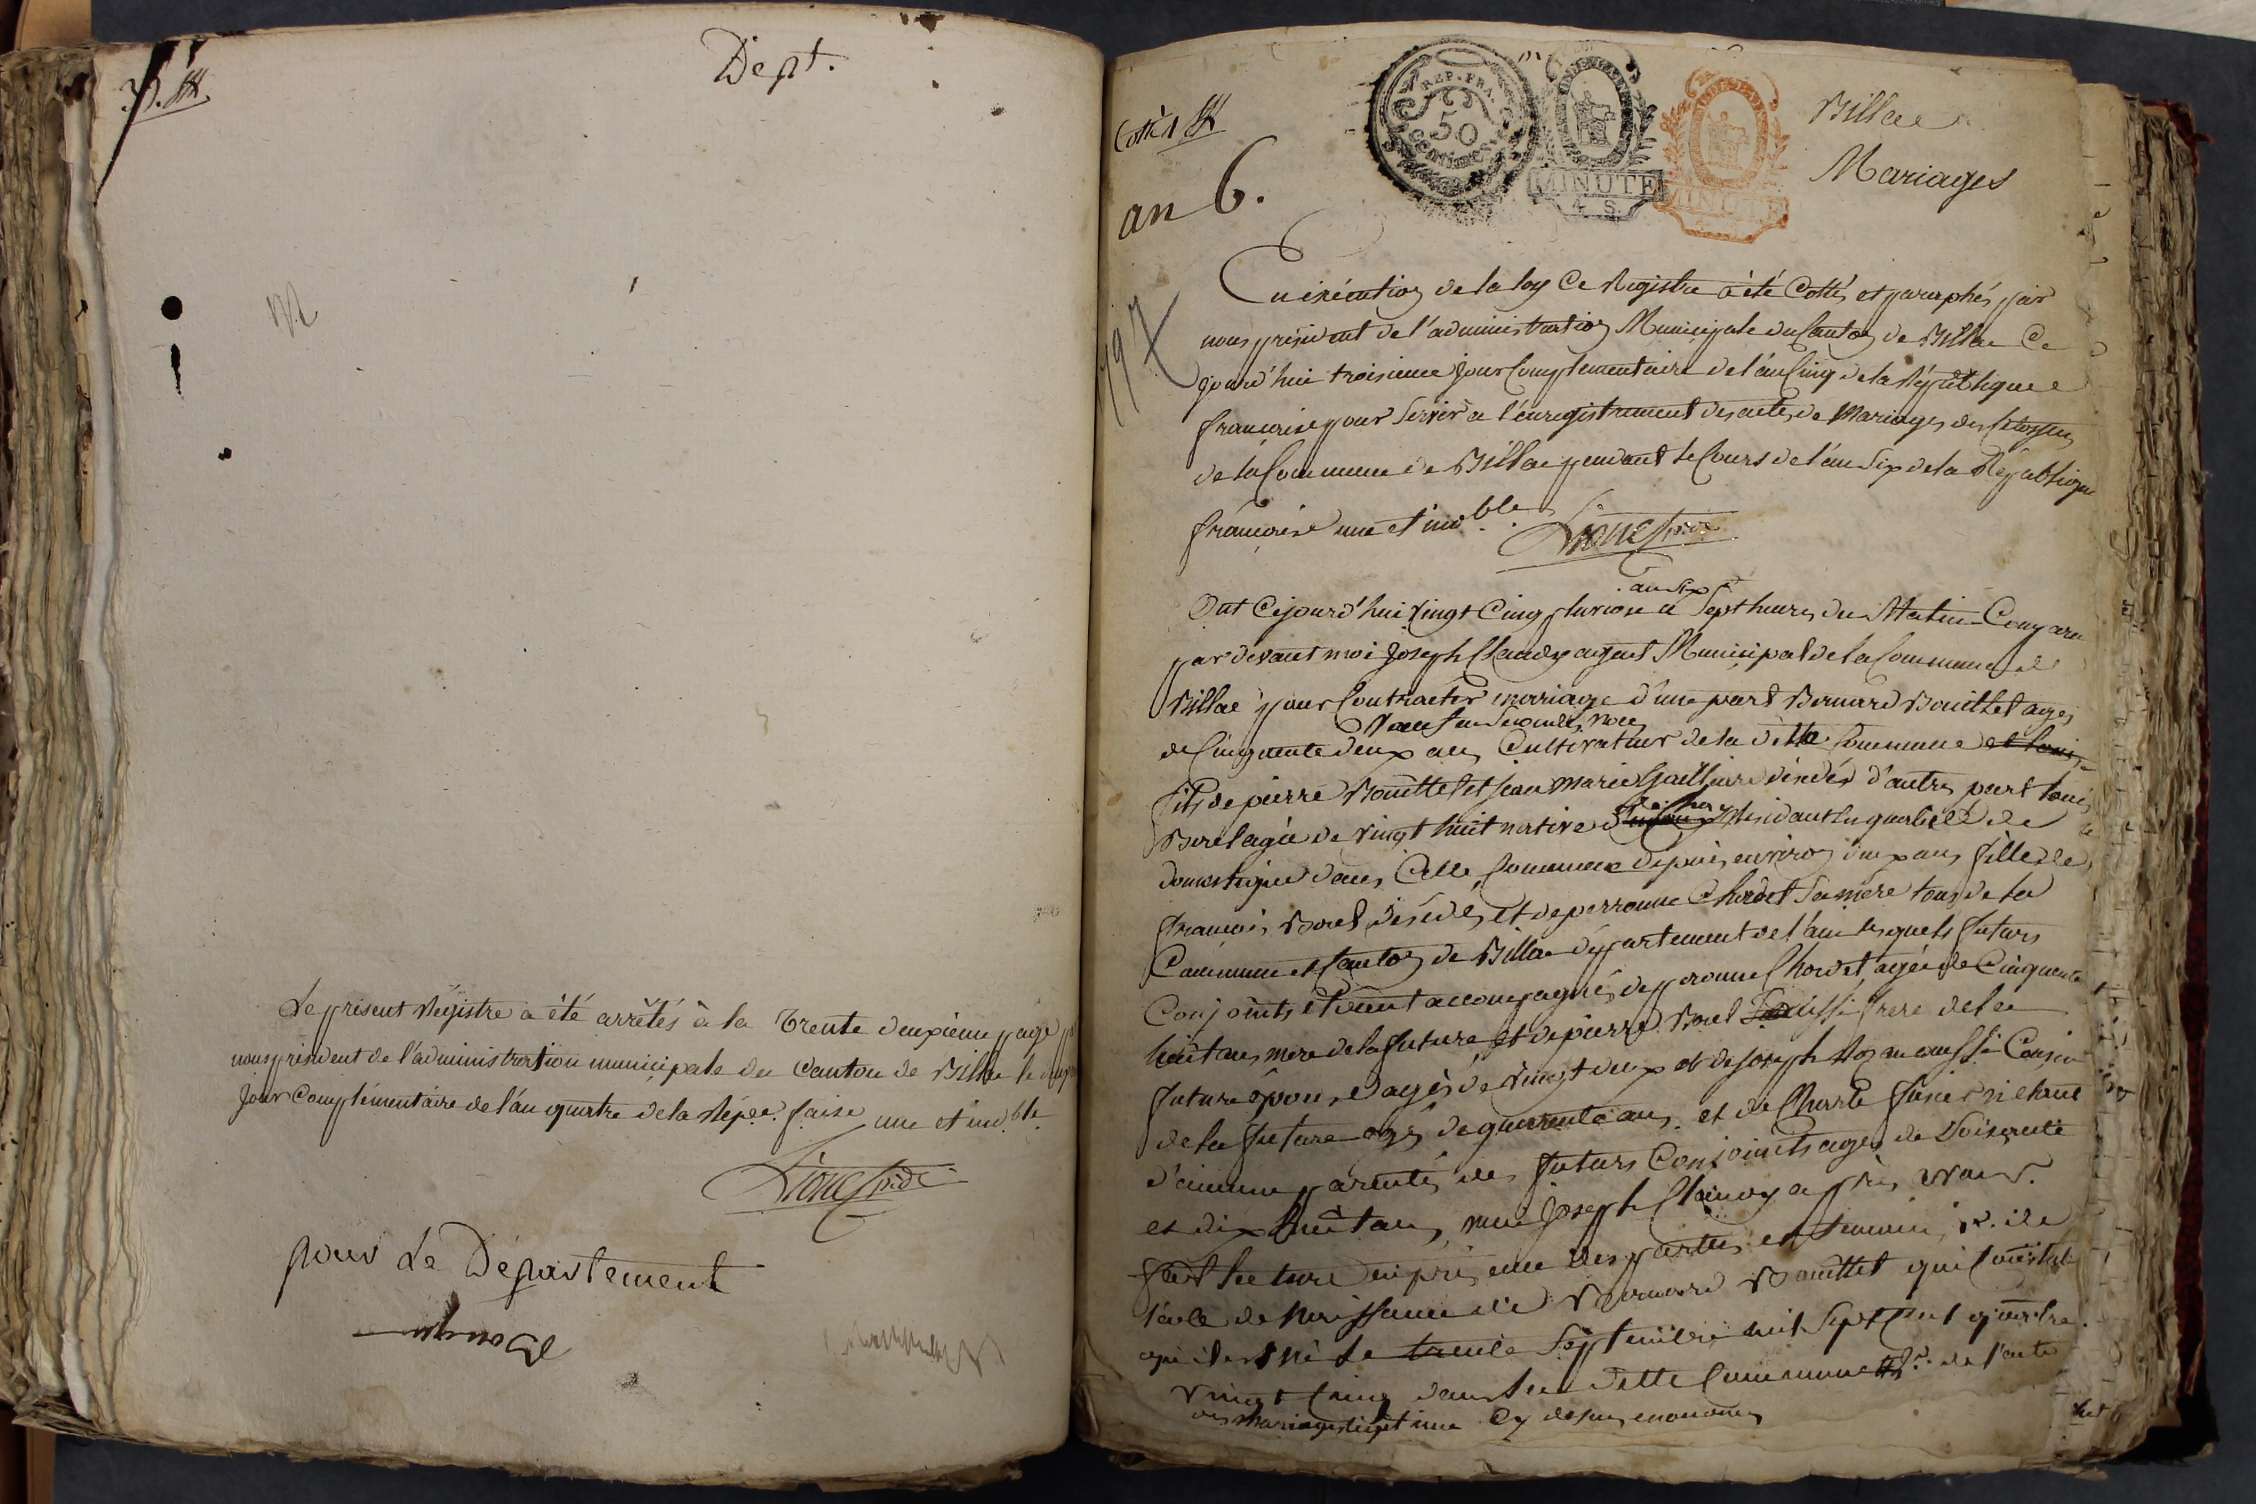 Dept.
Le present Régistre a été arrêtés à la trente deuxième page
nous président de l'administration municipale du Canton de Billac le
Jour Complémentaire de l'an quatre de la Répe. faise une et ind.ble
pour Le Département
Cotté 1
an 6.
REP. FRA.
50
Centimes
MINUTE
4. S.
MINUTE
Billac
Mariages
197
En exécution de la loy Ce Registre a été Cotté et paraphés par
nous président de l'administration Municipale du Canton de Billac Ce
jourd'hui troisieme jour Complementaire de l'an Cinq de la République
francaise pour Servir a l'enregistrement des actes de Mariages des Citoyens
de la Commune de Billac pendant le Cours de l'an Six de la République
francaise une et ind.ble
an Six
Dut Cejourd'hui vingt Cinq pluviose a Sept heures du Matin Compara
par devant moi Joseph Claudy agent Municipal de la Commune de
Billac pour Contracter mariage d'une part Bernard Bouillet agés
de Cinquante deux ans Cultivateur de la ditte Commune
fils de pierre Bouillet et jean marie décédés d'autre part
Borel agée de vingt huit native residant en qualité de
domestique dans Cette Commune depuis environ deux ans fille de
francois Borel décédés et de perronne Chordet Sa mere tous de la
Commune et Canton de Billac département de l'ain lesquels futurs
Conjoints etoient accompagnés de peronne Chordet agée de Cinquante
huit ans mere de la future et de pierre Borel aussi frere de la
future épouse agés de vingt deux et de Joseph aussi Cousin
de la future agés de quarante ans et de Charle
d'aucune parentés des futurs Conjoints agés de Soixante
et dix huit ans, moi Joseph Claudy après avoir
fait lecture en présence des parties et temoins 1.o de
l'acte de Naissance de Bernard Bouillet qui Constate
qu'il est né le trente Septembre mil Sept Cent quatre
vingt Cinq dans la ditte Commune 2.o de l'acte
de mariage Cy dessus enoncés